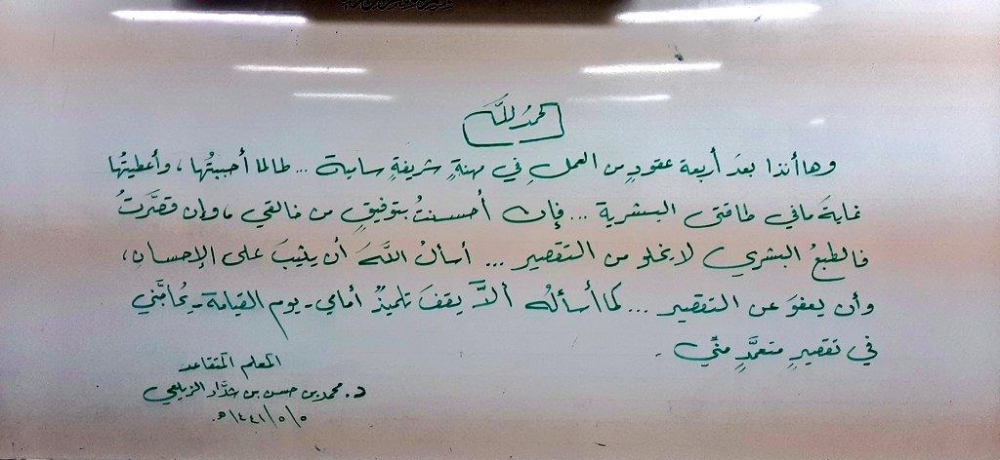 الحمدُ للَّه
وها أنذا بعدَ أربعة عقودٍ من العملِ في مهنةٍ شريفةٍ سامية ... طالما أحببتُها ، وأعطيتُها
غايةَ مافي طاقتي البشرية ... فإن أحسنتُ بتوفيقٍ من خالقي ، وإن قصَّرتُ
فالطبعُ البشري لا يخلو من التقصير ... أسألُ اللَّهَ أن يثيبَ على الإحسانِ ،
وأن يعفوَ عن التقصير ... كما أسألُه ألاَّ يقفَ تلميذٌ أمامي - يوم القيامة - يُحاجُّني
في تقصيرٍ متعمَّدٍ منّي .
المعلم المتقاعد
د. محمد بن حسن بن شدَّاد الزيلعي
١٤٤١/٥/٥هـ